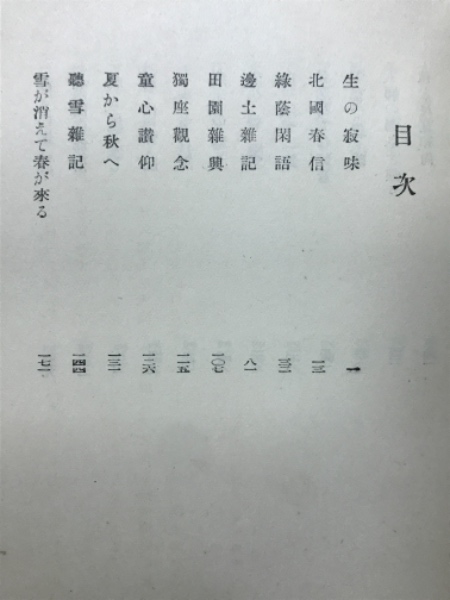 目次
生の寂味 一
北國春信 一三
綠蔭閑語 三三
邊土雜記 八一
田園雜興 一〇七
獨座觀念 一一五
童心讃仰 一二六
夏から秋へ 一三一
聽雪雜記 一四四
雪が消えて春が來る 一七一